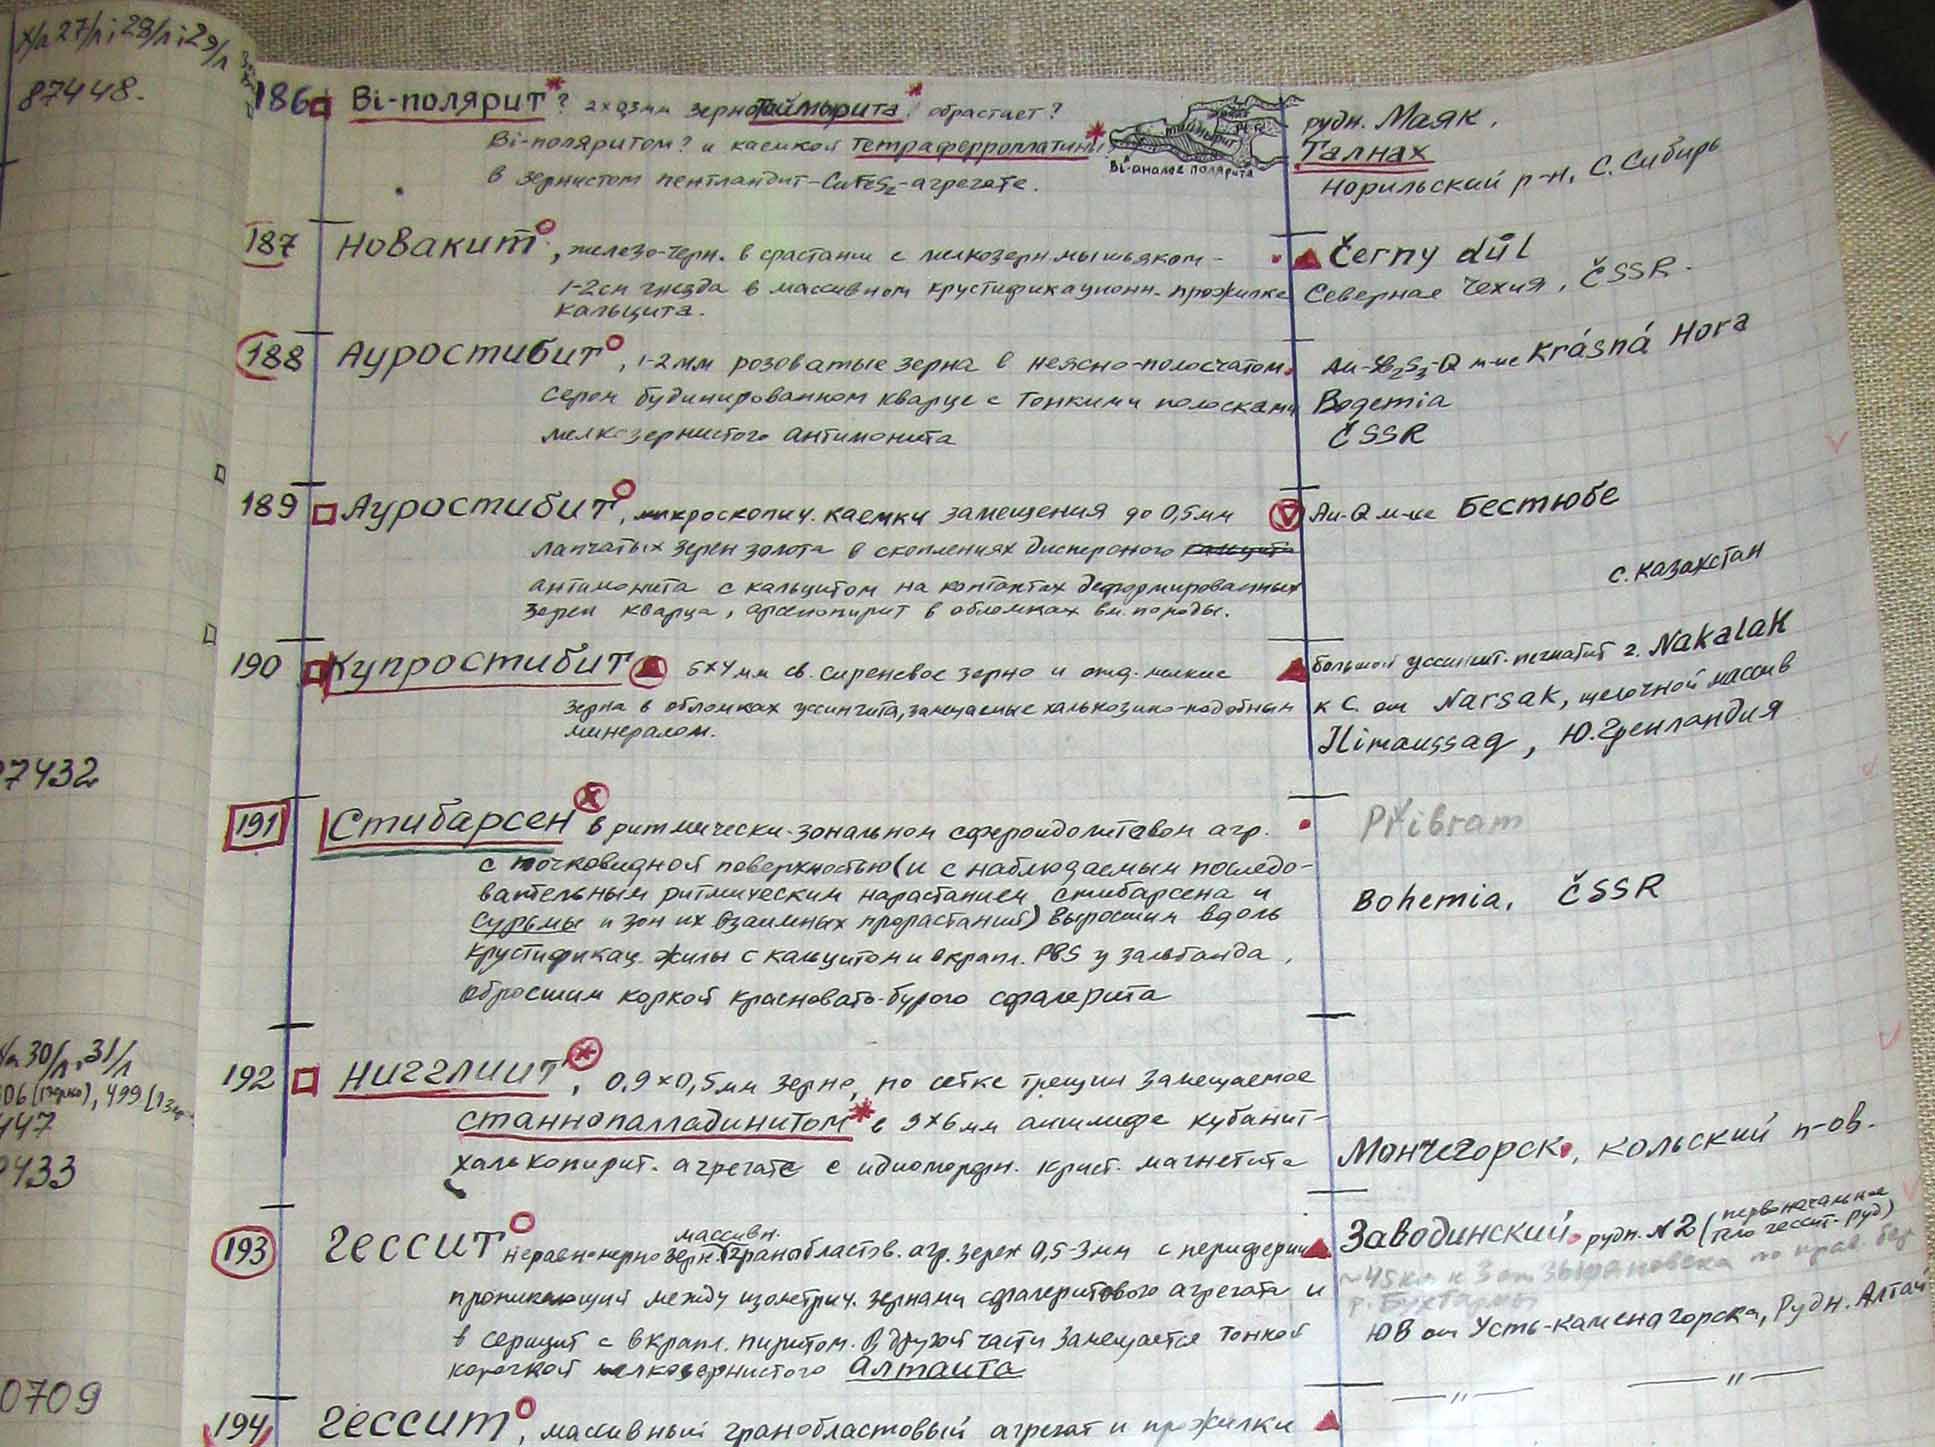 х/а 27/л; 28/л; 29/л
87448.
186 Bi-полярит*? 2×0,3мм зерно таймырита* обрастает? рудн. Маяк,
Bi-поляритом? и каемкой тетраферроплатины* Талнах
Bi-аналог полярита
в зернистом пентландит-CuFeS2-агрегате. Норильский р-н, С. Сибирь
187 Новакит, железо-черн. в срастании с мелкозерн мышьяком- Černy důl
1-2см гнезда в массивном крустификационн. прожилке Северная Чехия, ČSSR.
кальцита.
188 Ауростибит, 1-2мм розоватые зерна в неясно-полосчатом Au-Sb2S3-Q м-ие Krásná Hora
сером будинированном кварце с тонкими полосками Bogemia
мелкозернистого антимонита ČSSR
189 Ауростибит, микроскопич. каемки замещения до 0,5мм Au-Q м-ие Бестюбе
лапчатых зерен золота в скоплениях дисперсного
антимонита с кальцитом на контактах деформированных С. Казахстан
зерен кварца, арсенопирит в обломках вм. породы.
190 Купростибит 5×4мм св. сиреневое зерно и отд. мелкие большой уссингит-пегматит г. Nakalak
зерна в обломках уссингита, замещаемые халькозино-подобным к С. от Narsak, щелочной массив
минералом. Ilimaussaq, Ю. Гренландия
7432
191 Стибарсен в ритмически-зональном сфероидолитовом агр. Přibram
с почковидной поверхностью (и с наблюдаемым последо-
вательным ритмическим нарастанием стибарсена и Bohemia, ČSSR
сурьмы и зон их взаимных прорастаний) выросшим вдоль
крустификац. жилы с кальцитом и вкрапл. PbS у зальбанда,
обросшим коркой красновато-бурого сфалерита
30/л, 31/л
192 Нигглиит*, 0.9×0,5мм зерно, по сетке трещин замещаемое
станнопалладинитом* в 9×6мм аншлифе кубанит-
447
халькопирит. агрегате с идиоморфн. крист. магнетита Мончегорск, Кольский п-ов.
9433
193 Гессит неравномерно массивн. зерн. гранобластов. агр. зерен 0,5-3мм с периферии Заводинский рудн. №2 (первоначальное тело гессит. руд)
проникающий между изометрич. зернами сфалеритового агрегата и ~45км к З от Зыряновска по прав. бер. р. Бухтармы
в серицит с вкрапл. пиритом. В другой части замещается тонкой ЮВ от Усть-Каменагорска, Рудн. Алтай
корочкой мелкозернистого алтаита
0709
194 Гессит, массивный гранобластовый агрегат и прожилки —"— —"—